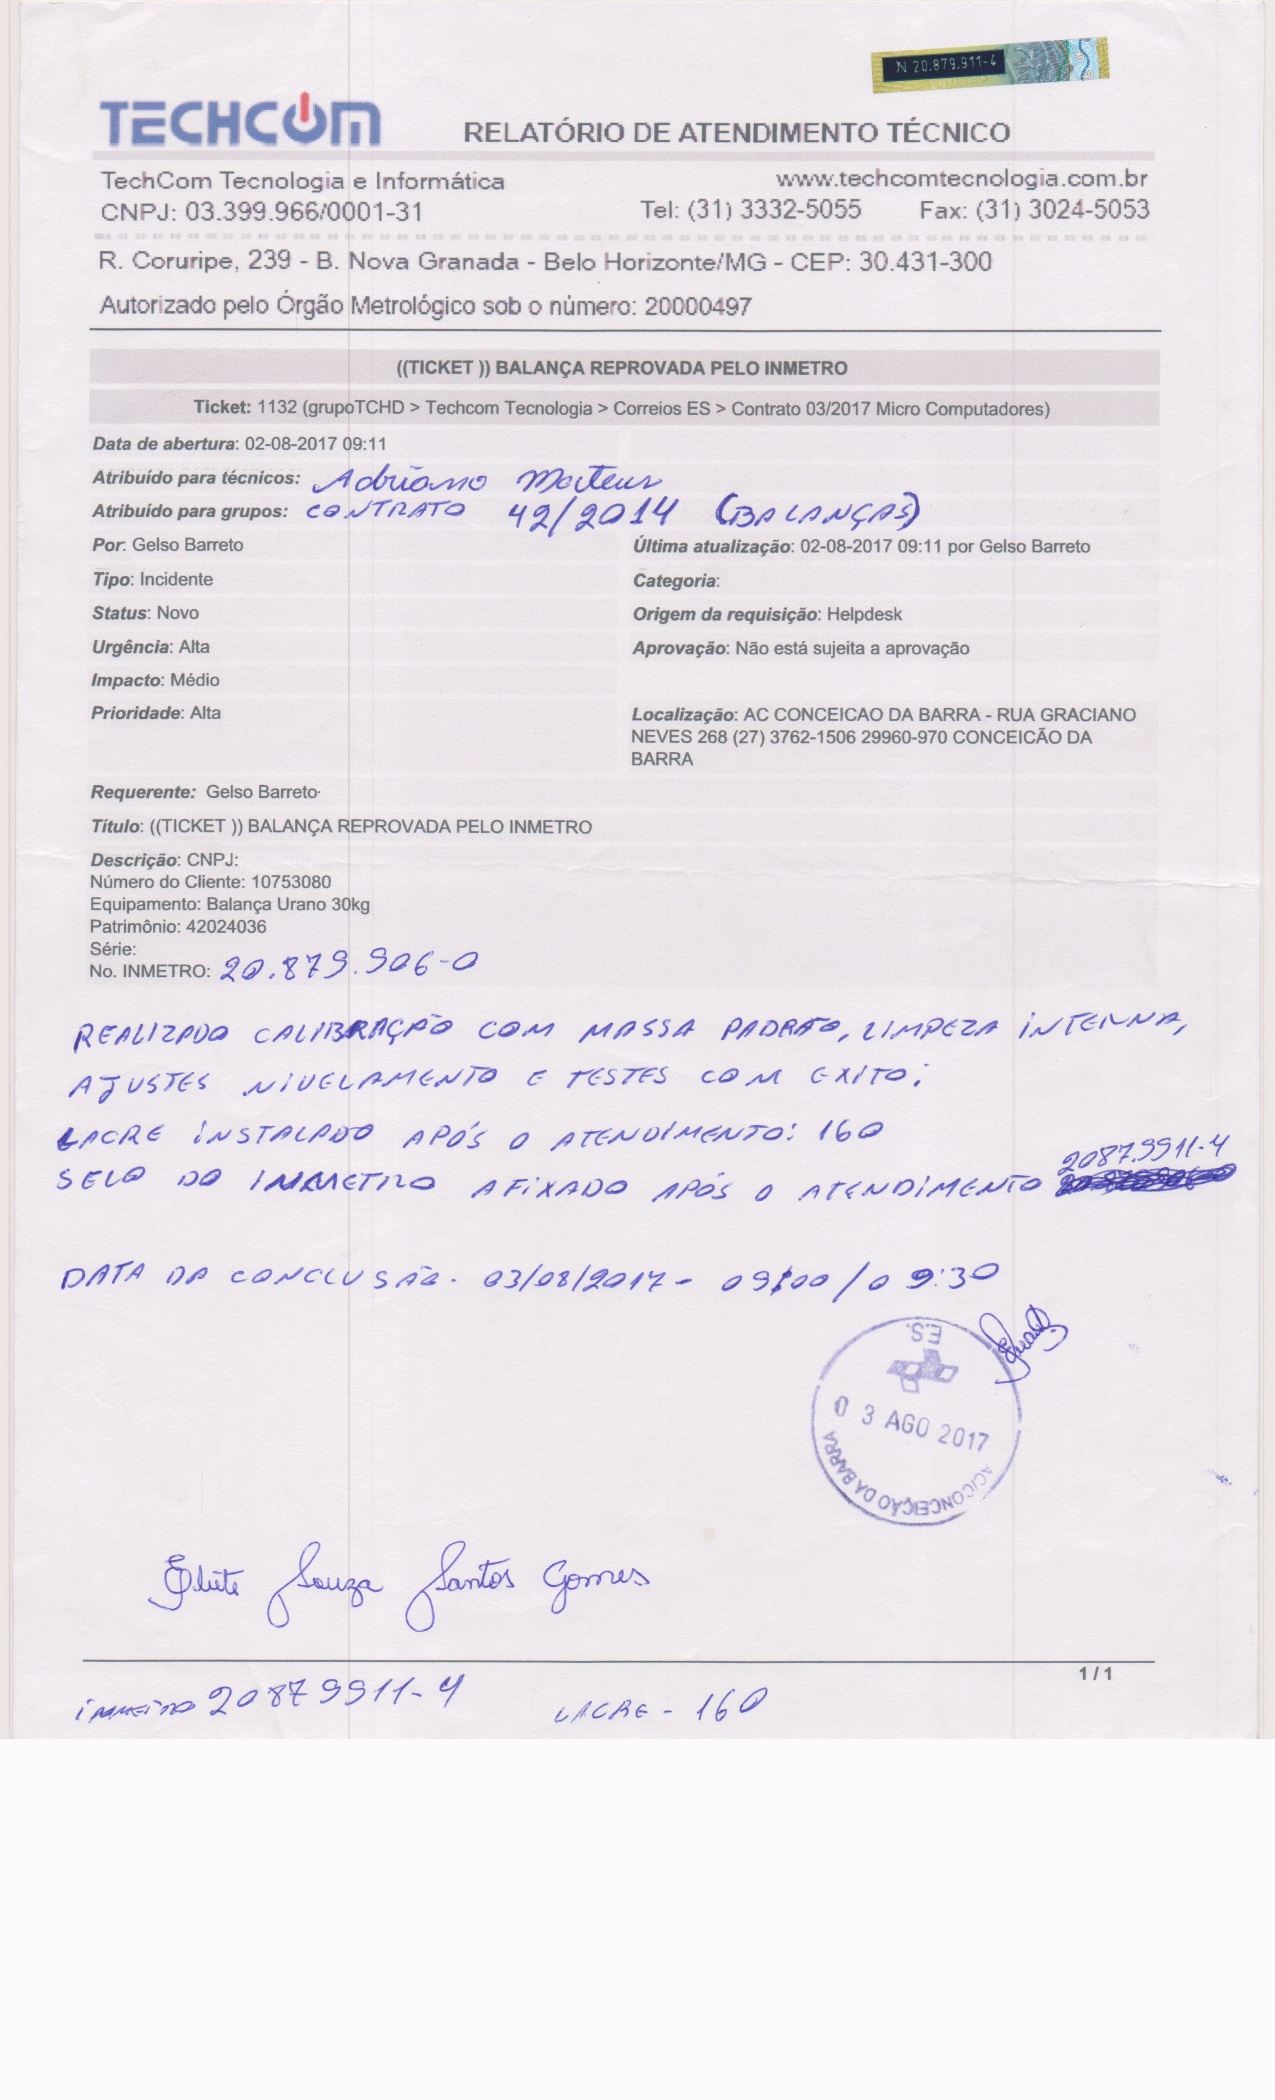 N 20.879.911-4
TECHCOM
RELATÓRIO DE ATENDIMENTO TÉCNICO
TechCom Tecnologia e Informática www.techcomtecnologia.com.br
CNPJ: 03.399.966/0001-31 Tel: (31) 3332-5055 Fax: (31) 3024-5053
R. Coruripe, 239 - B. Nova Granada - Belo Horizonte/MG - CEP: 30.431-300
Autorizado pelo Órgão Metrológico sob o número: 20000497
((TICKET )) BALANÇA REPROVADA PELO INMETRO
Ticket: 1132 (grupoTCHD > Techcom Tecnologia > Correios ES > Contrato 03/2017 Micro Computadores)
Data de abertura: 02-08-2017 09:11
Atribuído para técnicos: Adriano Mateus
Atribuído para grupos: CONTRATO 42/2014 (BALANÇAS)
Por: Gelso Barreto Última atualização: 02-08-2017 09:11 por Gelso Barreto
Tipo: Incidente Categoria:
Status: Novo Origem da requisição: Helpdesk
Urgência: Alta Aprovação: Não está sujeita a aprovação
Impacto: Médio
Prioridade: Alta Localização: AC CONCEICAO DA BARRA - RUA GRACIANO
NEVES 268 (27) 3762-1506 29960-970 CONCEICÃO DA
BARRA
Requerente: Gelso Barreto
Título: ((TICKET )) BALANÇA REPROVADA PELO INMETRO
Descrição: CNPJ:
Número do Cliente: 10753080
Equipamento: Balança Urano 30kg
Patrimônio: 42024036
Série:
No. INMETRO: 20.879.906-0
REALIZADO CALIBRAÇÃO COM MASSA PADRÃO, LIMPEZA INTERNA,
AJUSTES NIVELAMENTO E TESTES COM EXITO;
LACRE INSTALADO APÓS O ATENDIMENTO: 160
SELO DO INMETRO AFIXADO APÓS O ATENDIMENTO 2087.9911-4
DATA DA CONCLUSÃO - 03/08/2017 - 09:00 / 09:30
E.S.
03 AGO 2017
AC/CONCEIÇÃO DA BARRA
Elute Souza Santos Gomes
1 / 1
INMETRO 20879911-4 LACRE - 160